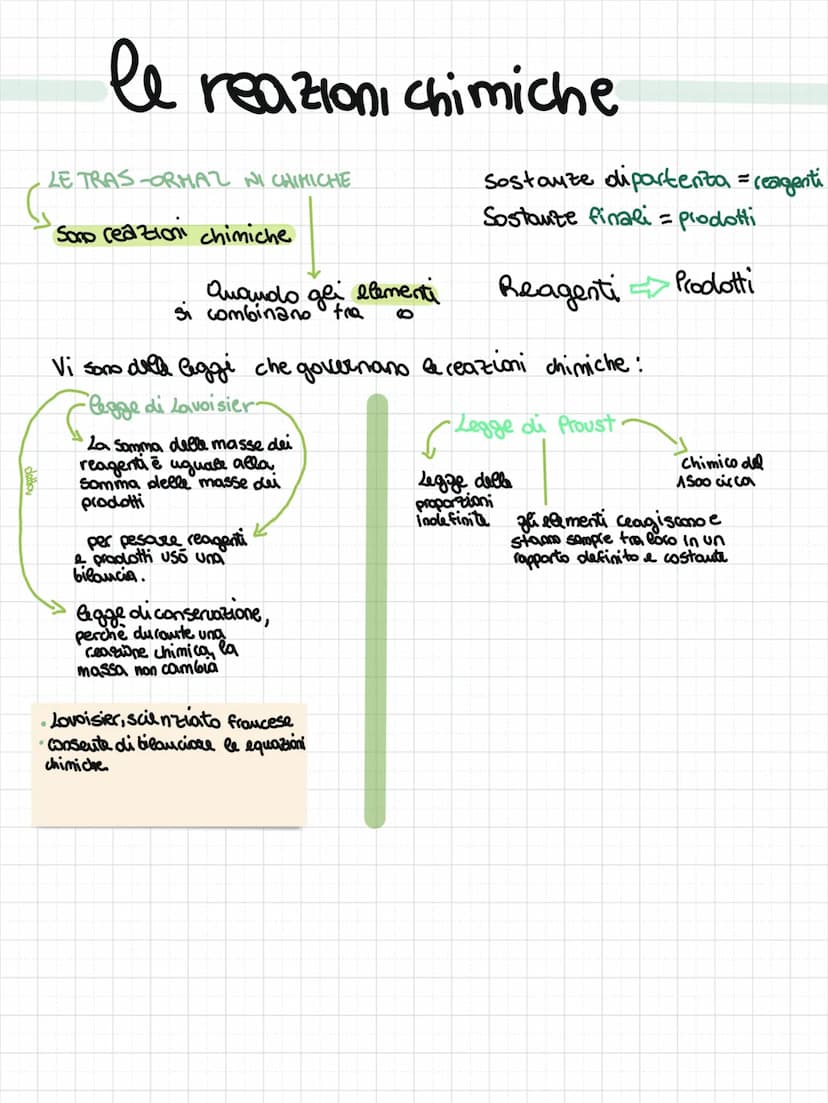 le reazioni chimiche
LE TRAS-ORMAZ NI CHIMICHE
Sono reazioni chimiche
Quando gli elementi
si combinano tra
Sostanze di partenza = reagenti
Sostanze finali = prodotti
Reagenti ⇨ Prodotti
Vi sono delle leggi che governano le reazioni chimiche:
Legge di Lavoisier
La somma delle masse dei
reagenti è uguale alla
somma delle masse dei
prodotti
per pesare reagenti
e prodotti usò una
bilancia.
legge di conservazione,
perchè durante una
reazione chimica, la
massa non cambia
• Lavoisier, scienziato francese
• consente di bilanciare le equazioni
chimiche.
Legge di Proust
Legge delle
proporzioni
indefinite
gli elementi reagiscono e
stanno sempre tra loro in un
rapporto definito e costante
Chimico del
1500 circa